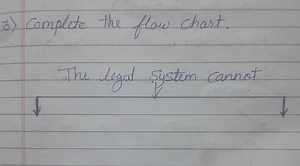 3) Complete the flow chart.
The legal system cannot